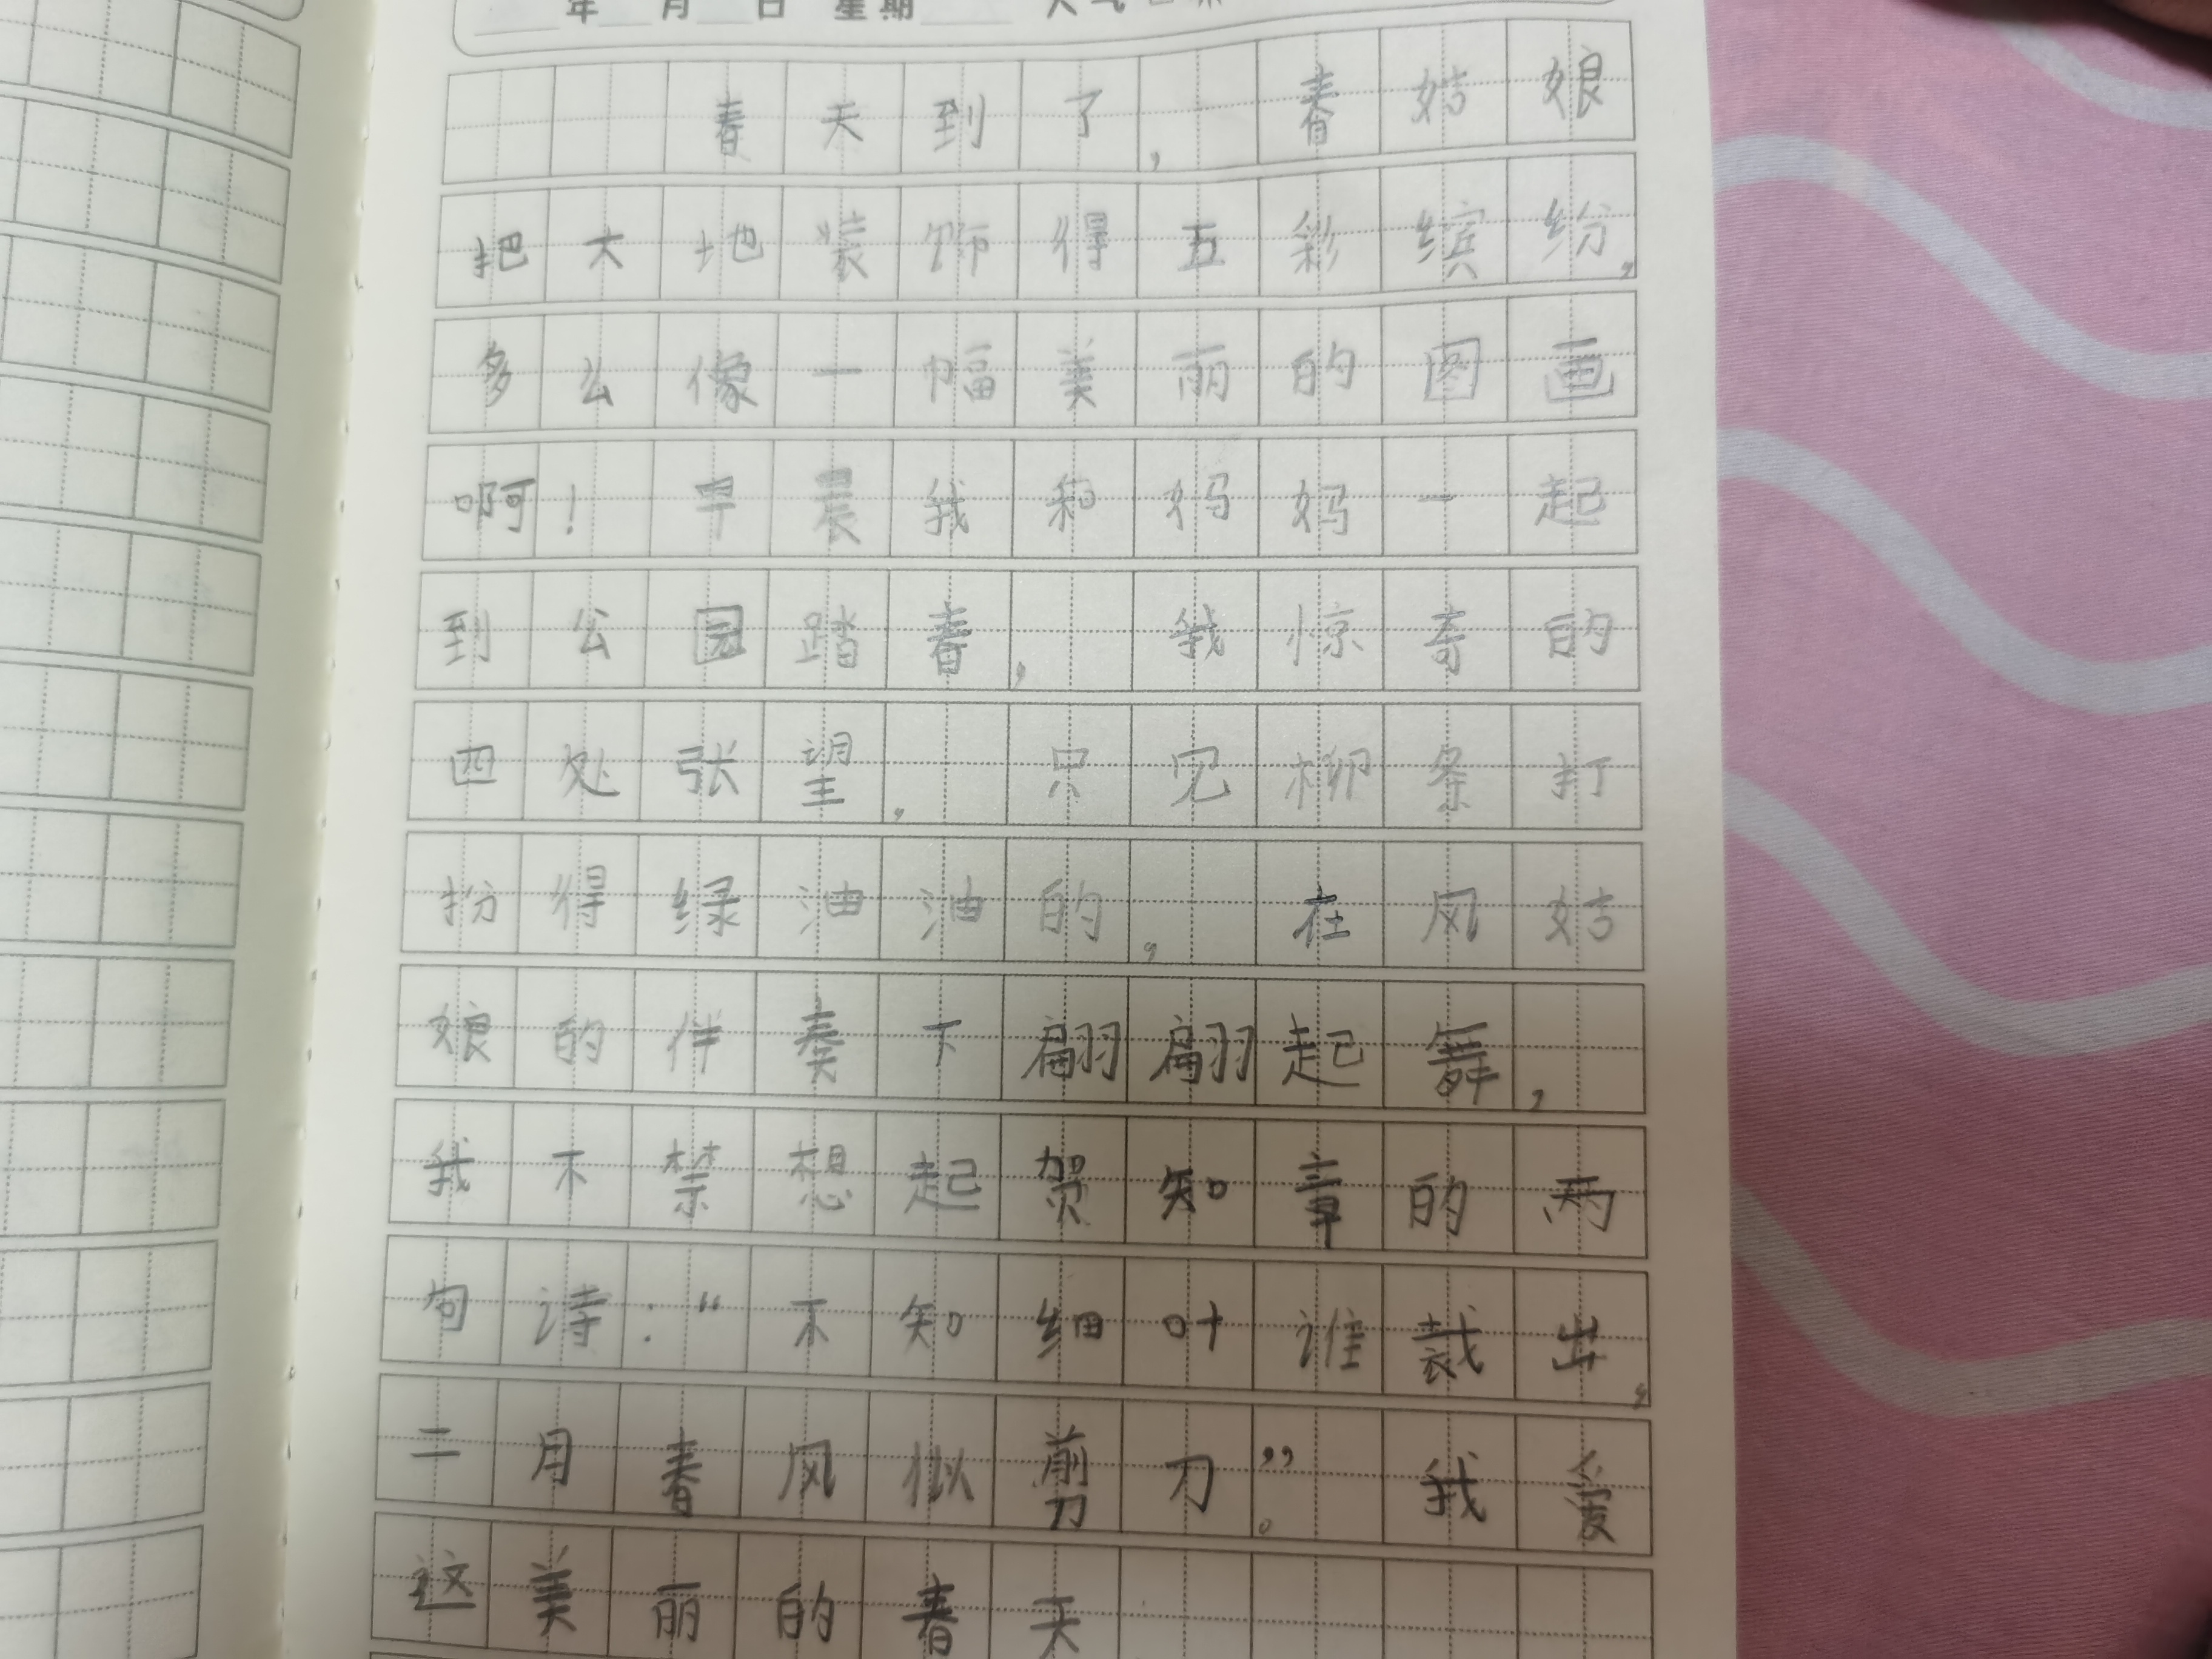 年 月 日 星期 天气
春天到了，春姑娘
把大地装饰得五彩缤纷，
多么像一幅美丽的图画
啊！早晨我和妈妈一起
到公园踏春，我惊奇的
四处张望，只见柳条打
扮得绿油油的，在风姑
娘的伴奏下翩翩起舞，
我不禁想起贺知章的两
句诗：“不知细叶谁裁出，
二月春风似剪刀”。我爱
这美丽的春天